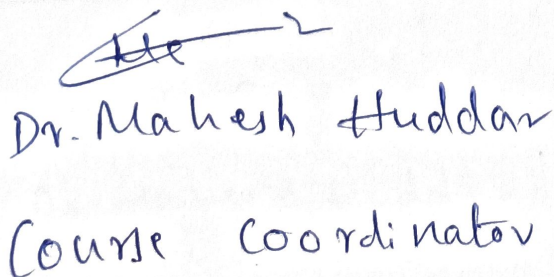 Dr. Mahesh Huddar
Course Coordinator